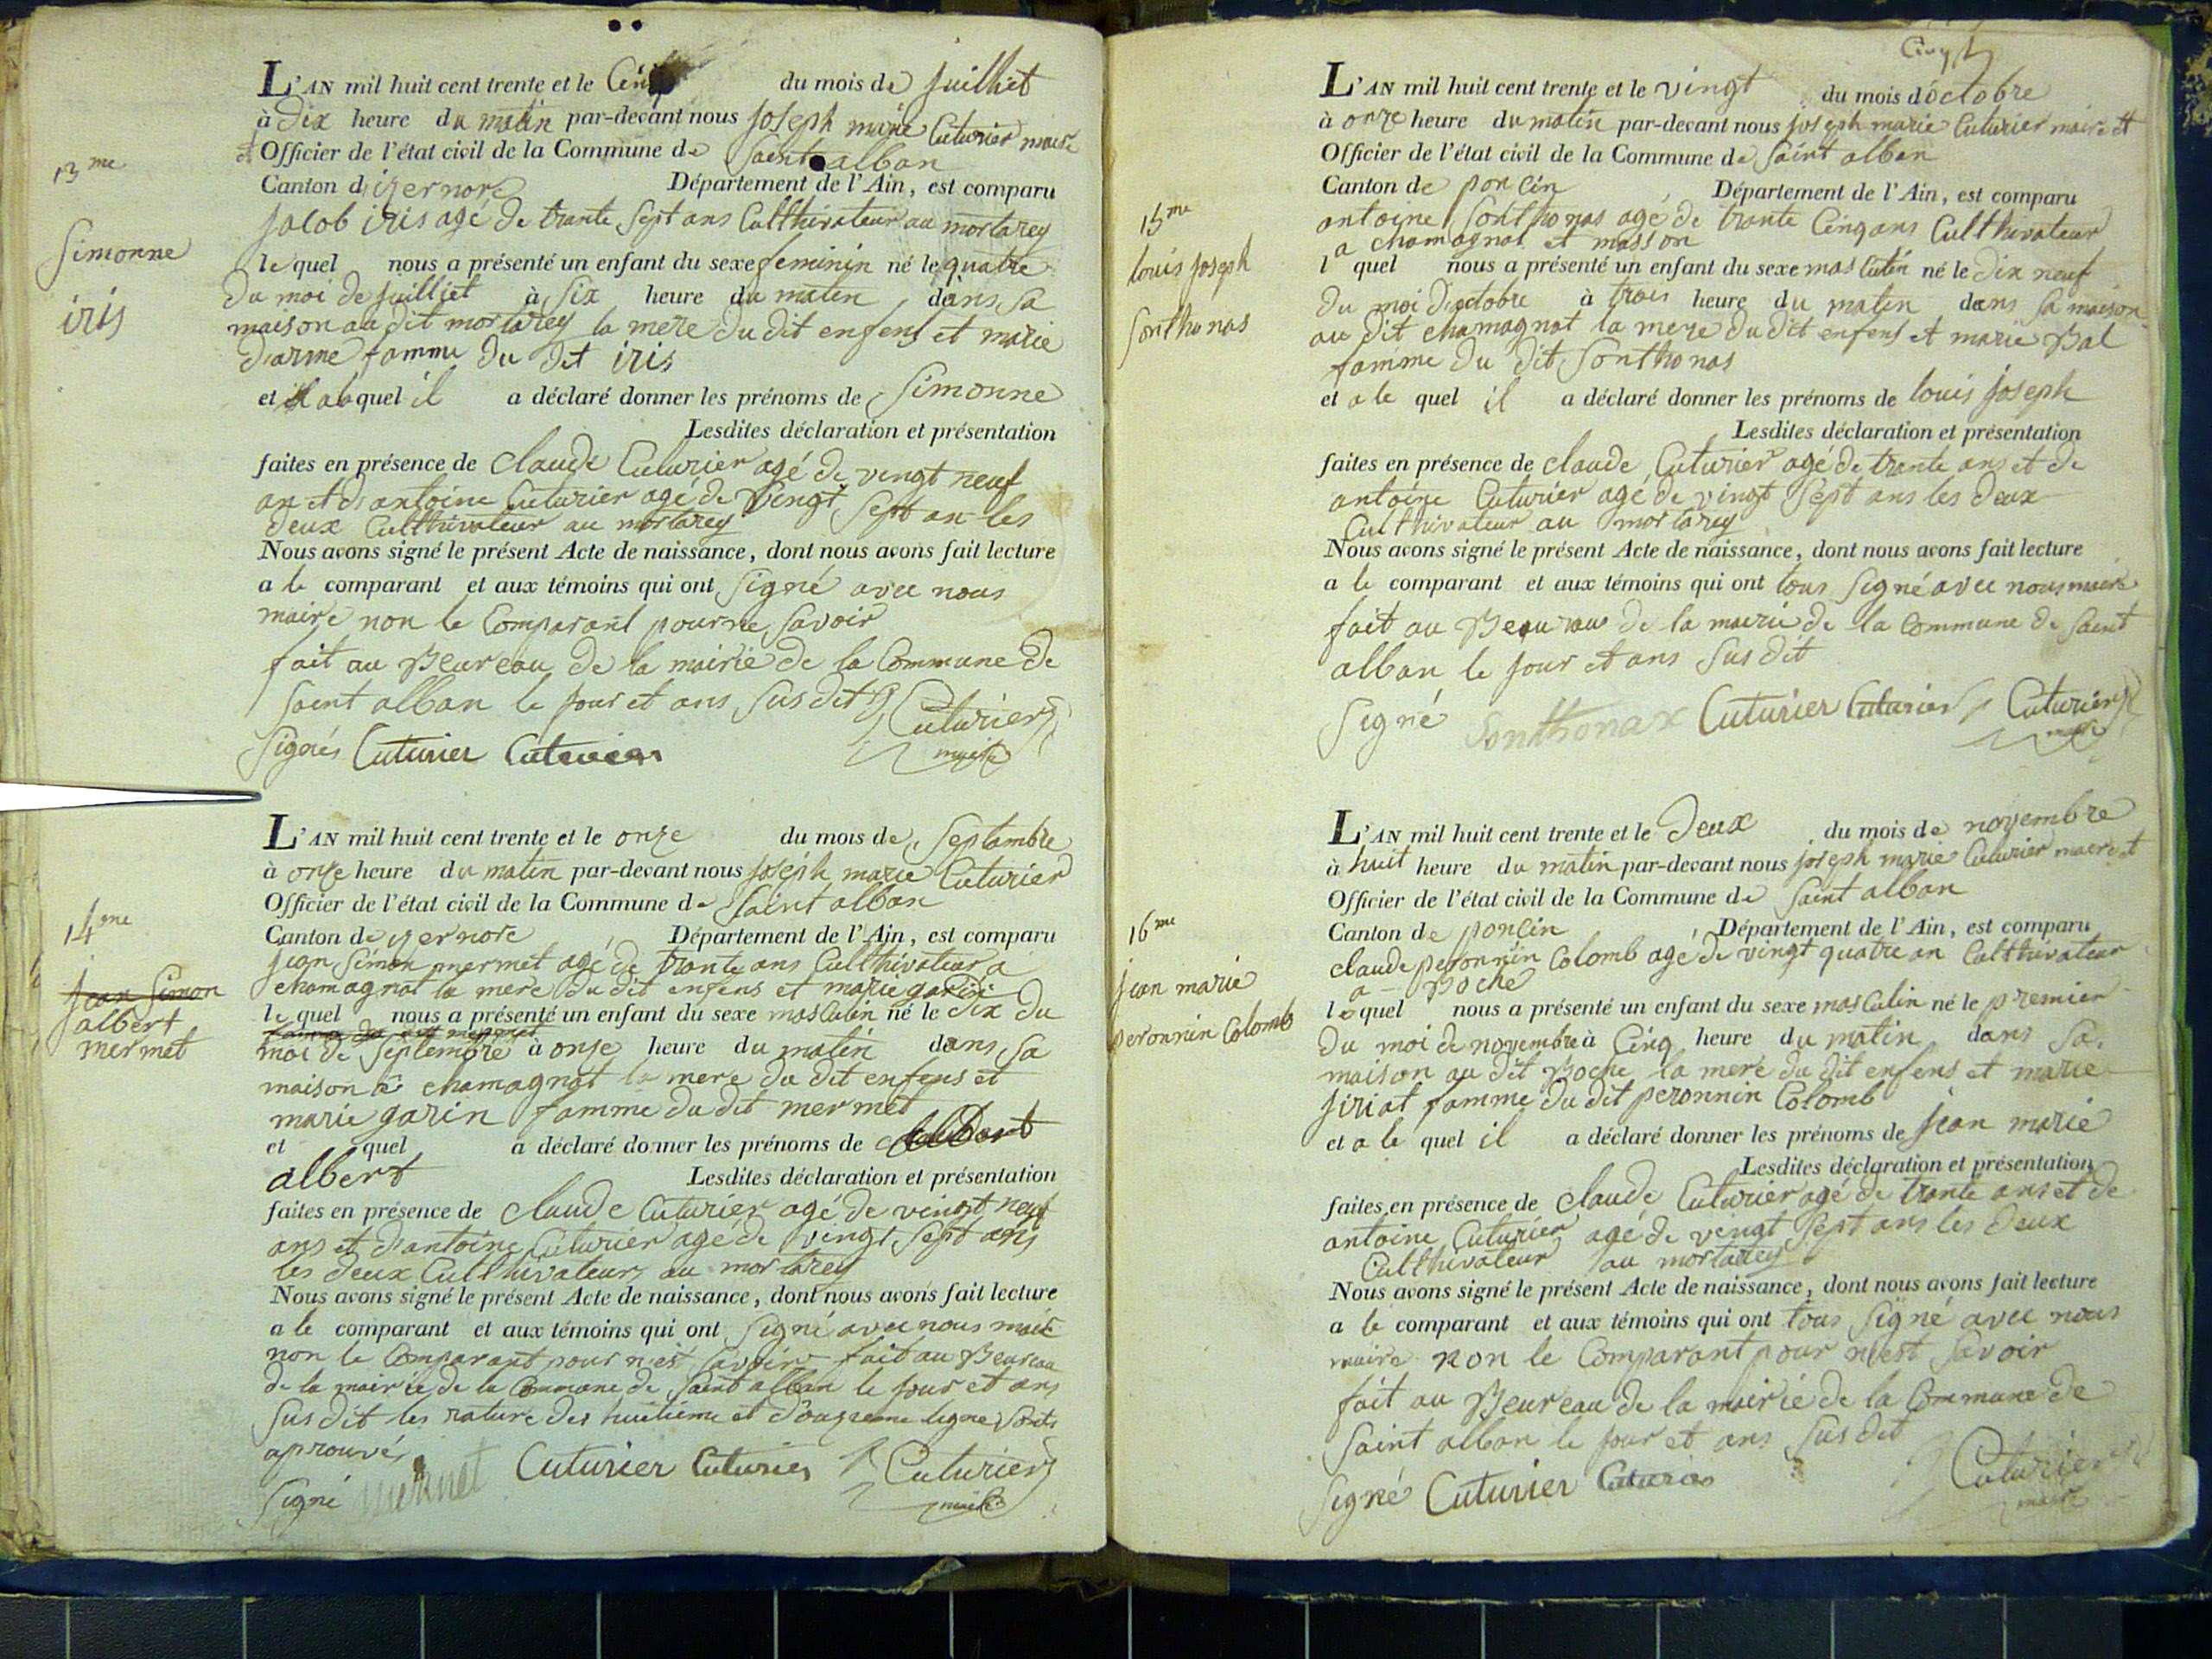 L'AN mil huit cent trente et le Cinq du mois de Juilliet
à Dix heure du matin par-devant nous Joseph marie Cuturier maire
et Officier de l'état civil de la Commune de Saint alban
Canton d'izernore Département de l'Ain, est comparu
Jacob iris agé de trante Sept ans Culthivateur au mortarey
le quel nous a présenté un enfant du sexe feminin né le quatre
Du moi de Juilliet à Six heure du maten dans Sa
maison au dit mortarey la mere du dit enfens et marie
Darme famme Du dit iris
et quel il a déclaré donner les prénoms de Simonne
Lesdites déclaration et présentation
faites en présence de Claude Cuturier agé de vingt neuf
an et d'antoine Cuturier agé de Vingt Sept an les
deux Culthivateur au mortarey
Nous avons signé le présent Acte de naissance, dont nous avons fait lecture
a le comparant et aux témoins qui ont Signé avec nous
maire non le Comparant pour ne Savoir
fait au Beureau de la mairie de la Commune de
Saint alban le Jour et ans Susdit
Signés Cuturier Cuturier Cuturier
maire
13me
Simonne
iris
L'AN mil huit cent trente et le onze du mois de Septambre
à onze heure du maten par-devant nous Joseph marie Cuturier
Officier de l'état civil de la Commune de Saint alban
Canton de izernore Département de l'Ain, est comparu
Jean Simon mermet agé de trante ans Culthivateur a
chamagnat la mere du dit enfens et marie garin
le quel nous a présenté un enfant du sexe masCulin né le dix du
moi de Septembre à onze heure du matin dans Sa
maison à chamagnat la mere du dit enfens et
marie garin famme du dit mermet
et quel a déclaré donner les prénoms de
albert Lesdites déclaration et présentation
faites en présence de Claude Cuturier agé de vingt neuf
ans et d'antoine Cuturier agé de vingt Sept ans
les deux Culthivateur au mortarey
Nous avons signé le présent Acte de naissance, dont nous avons fait lecture
a le comparant et aux témoins qui ont Signé avec nous maire
non le Comparant pour n'est Savoir fait au Beureau
de la mairie de la Commune de Saint alban le Jour et ans
Susdit les rature des huitieme et d'ouzieme ligne Sonts
aprouvés
Signé mermet Cuturier Cuturier Cuturier
maire
14me
Jean Simon
albert
mermet
Cinq
L'AN mil huit cent trente et le vingt du mois d'octobre
à onze heure du maten par-devant nous Joseph marie Cuturier maire et
Officier de l'état civil de la Commune de Saint alban
Canton de poncin Département de l'Ain, est comparu
antoine Sonthonas agé de trante Cinq ans Culthivateur
a chamagnat et masson
l quel nous a présenté un enfant du sexe masCulin né le Dix neuf
Du moi D'octobre à trois heure du maten dans Sa maison
au dit chamagnat la mere du dit enfens et marie Bal
famme Du dit Sonthonas
et a le quel il a déclaré donner les prénoms de louis Joseph
Lesdites déclaration et présentation
faites en présence de Claude Cuturier agé de trante ans et de
antoine Cuturier agé de vingt Sept ans les deux
Culthivateur au mortarey
Nous avons signé le présent Acte de naissance, dont nous avons fait lecture
a le comparant et aux témoins qui ont tous Signé avec nous maire
fait au Beaurau de la mairie de la Commune de Saint
alban le Jour et ans Susdit
Signé Sonthonax Cuturier Cuturier Cuturier
maire
15me
louis Joseph
Sonthonas
L'AN mil huit cent trente et le Deux du mois de novembre
à huit heure du matin par-devant nous Joseph marie Cuturier maire et
Officier de l'état civil de la Commune de Saint alban
Canton de poncin Département de l'Ain, est comparu
Claude peronnin Colomb agé de vingt quatre an Culthivateur
a Boche
le quel nous a présenté un enfant du sexe masCulin né le premier
Du moi de novembre à Cinq heure du matin dans Sa
maison au dit Boche la mere du dit enfens et marie
Jiriat famme du dit peronnin Colomb
et a le quel il a déclaré donner les prénoms de Jean marie
Lesdites déclaration et présentation
faites en présence de Claude Cuturier agé de trante ans et de
antoine Cuturier agé de vengt Sept ans les deux
Culthivateur au mortarey
Nous avons signé le présent Acte de naissance, dont nous avons fait lecture
a le comparant et aux témoins qui ont tous Signé avec nous
maire non le Comparant pour n'est Savoir
fait au Beureau de la mairie de la Commune de
Saint alban le Jour et ans Susdit
Signé Cuturier Cuturier Cuturier
maire
16me
Jean marie
peronnin Colomb